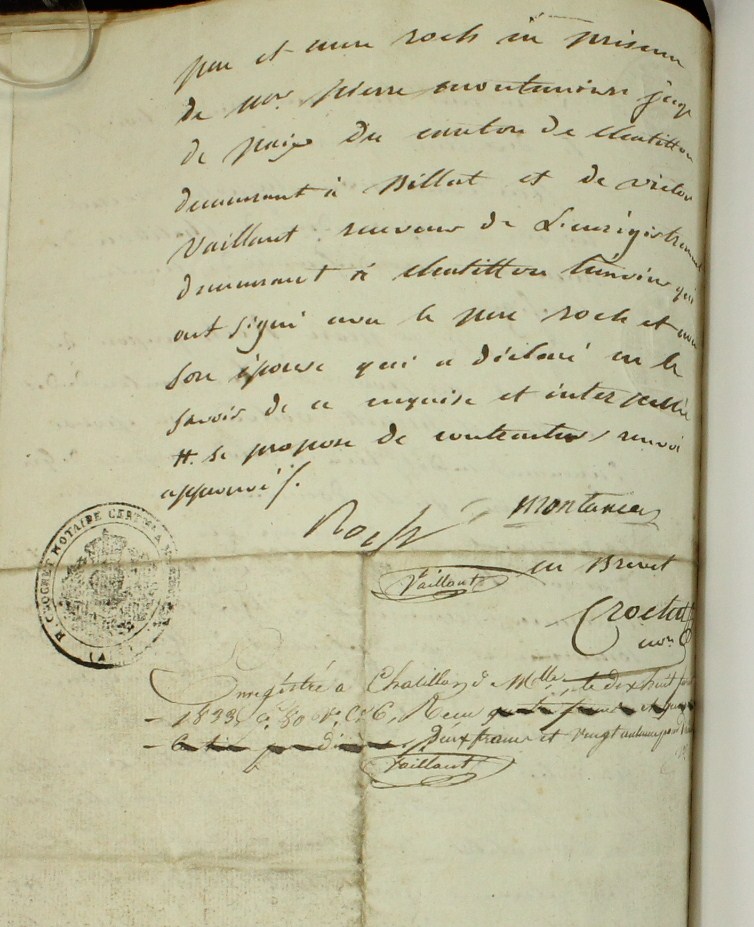 père et mère roch en présence
de mr. pierre montanier juge
de paix du canton de chatillon
demeurant à Billat et de victor
Vaillant receveur de L'enregistrement
demeurant à chatillon témoins qui
ont signé avec le père roch et non
son épouse qui a déclaré ne le
savoir de ce enquise et interpellée
#. se propose de contracter / renvoi
approuvé /.
Roch montanier
en Brevet
Vaillant
Crochet
nore
Enregistré à Chatillon de Mlle le dix huit
1833 fo. 80 vo. C. 6, Recu
deux francs et vingt centimes pour
Vaillant
CROCHET NOTAIRE CERTIFI
(AIN)